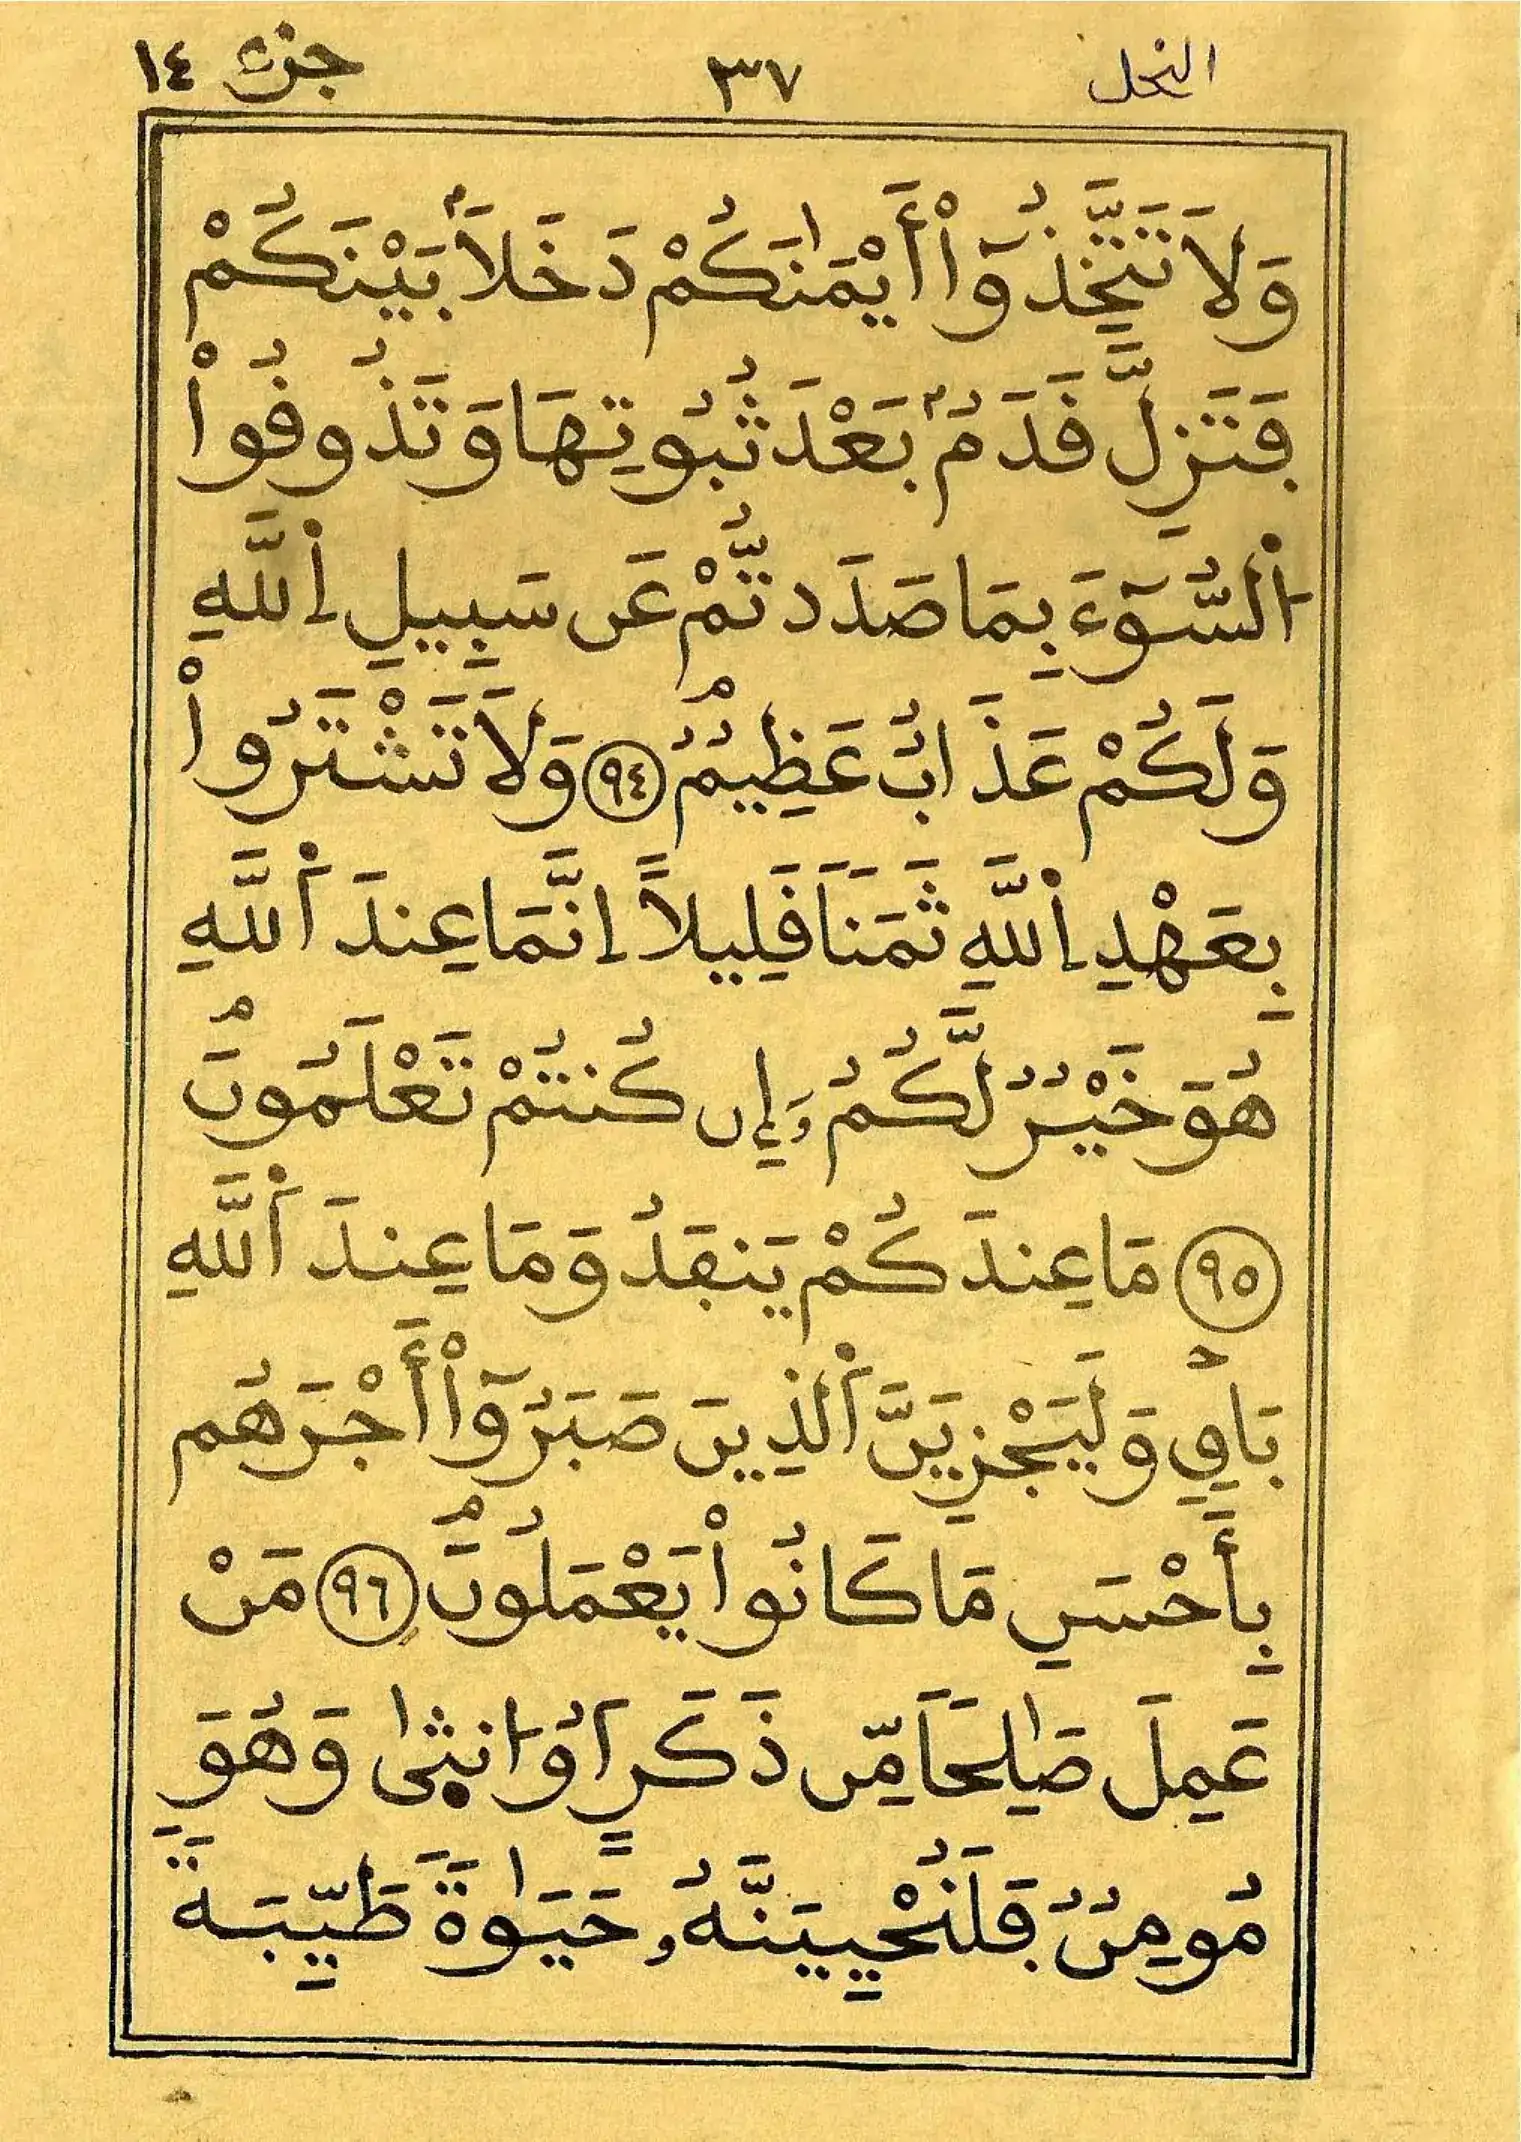 النحل ٣٧ جزء ١٤
وَلَا تَتَّخِذُوٓاْ أَيْمَٰنَكُمْ دَخَلَاۢ بَيْنَكُمْ
فَتَزِلَّ قَدَمُۢ بَعْدَ ثُبُوتِهَا وَتَذُوقُواْ
اُ۬لسُّوٓءَ بِمَا صَدَدتُّمْ عَن سَبِيلِ اِ۬للَّهِ
وَلَكُمْ عَذَابٌ عَظِيمٌۭ ٩٤ وَلَا تَشْتَرُواْ
بِعَهْدِ اِ۬للَّهِ ثَمَنٗا قَلِيلًا اِنَّمَا عِندَ اَ۬للَّهِ
هُوَ خَيْرٞ لَّكُمُۥٓ إِن كُنتُمْ تَعْلَمُونَۭ
٩٥ مَا عِندَكُمْ يَنفَدُ وَمَا عِندَ اَ۬للَّهِ
بَاقٖ وَلَيَجْزِيَنَّ اَ۬لذِينَ صَبَرُوٓاْ أَجْرَهُم
بِأَحْسَنِ مَا كَانُواْ يَعْمَلُونَۭ ٩٦ مَنْ
عَمِلَ صَٰلِحٗا مِّن ذَكَرٍ اَوُ ا۟نث۪ىٰ وَهُوَ
مُومِنٞ فَلَنُحْيِيَنَّهُۥ حَيَوٰةٗ طَيِّبَةٗ